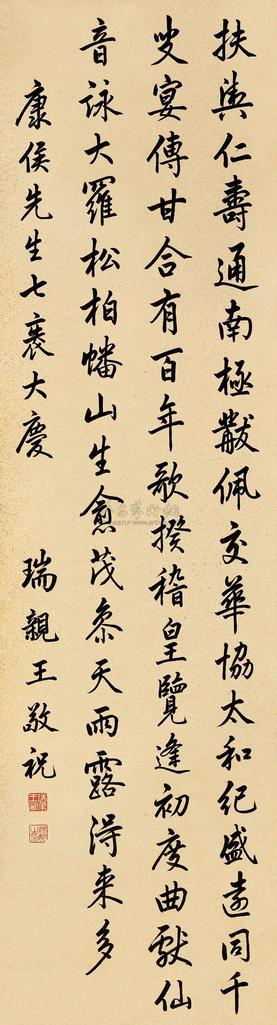 扶輿仁壽通南極黻佩交華協太和紀盛遠同千
叟宴傳甘合有百年歌揆稽皇覽逢初度曲獻仙
音詠大羅松柏蟠山生愈茂參天雨露得来多
康侯先生七袠大慶
瑞親王敬祝